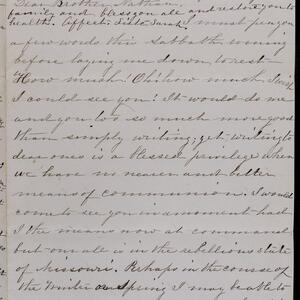 Dear Brother Nathan,
family and bless you and restore you to
health. Affect. Sister Sarah I must pen you
a few words this sabbath evening
before laying me down to rest—
How much! Oh! how much I wish
I could see you! It would do me
and you too so much more good
than simply writing; yet, writing to
dear ones is a blessed privilege when
we have no nearer and better
means of communion. I would
come to see you in a moment had
I the means now at command
but our all is in the rebellious state
of Missouri. Perhaps in the course of
the Winter or Spring I may be able to